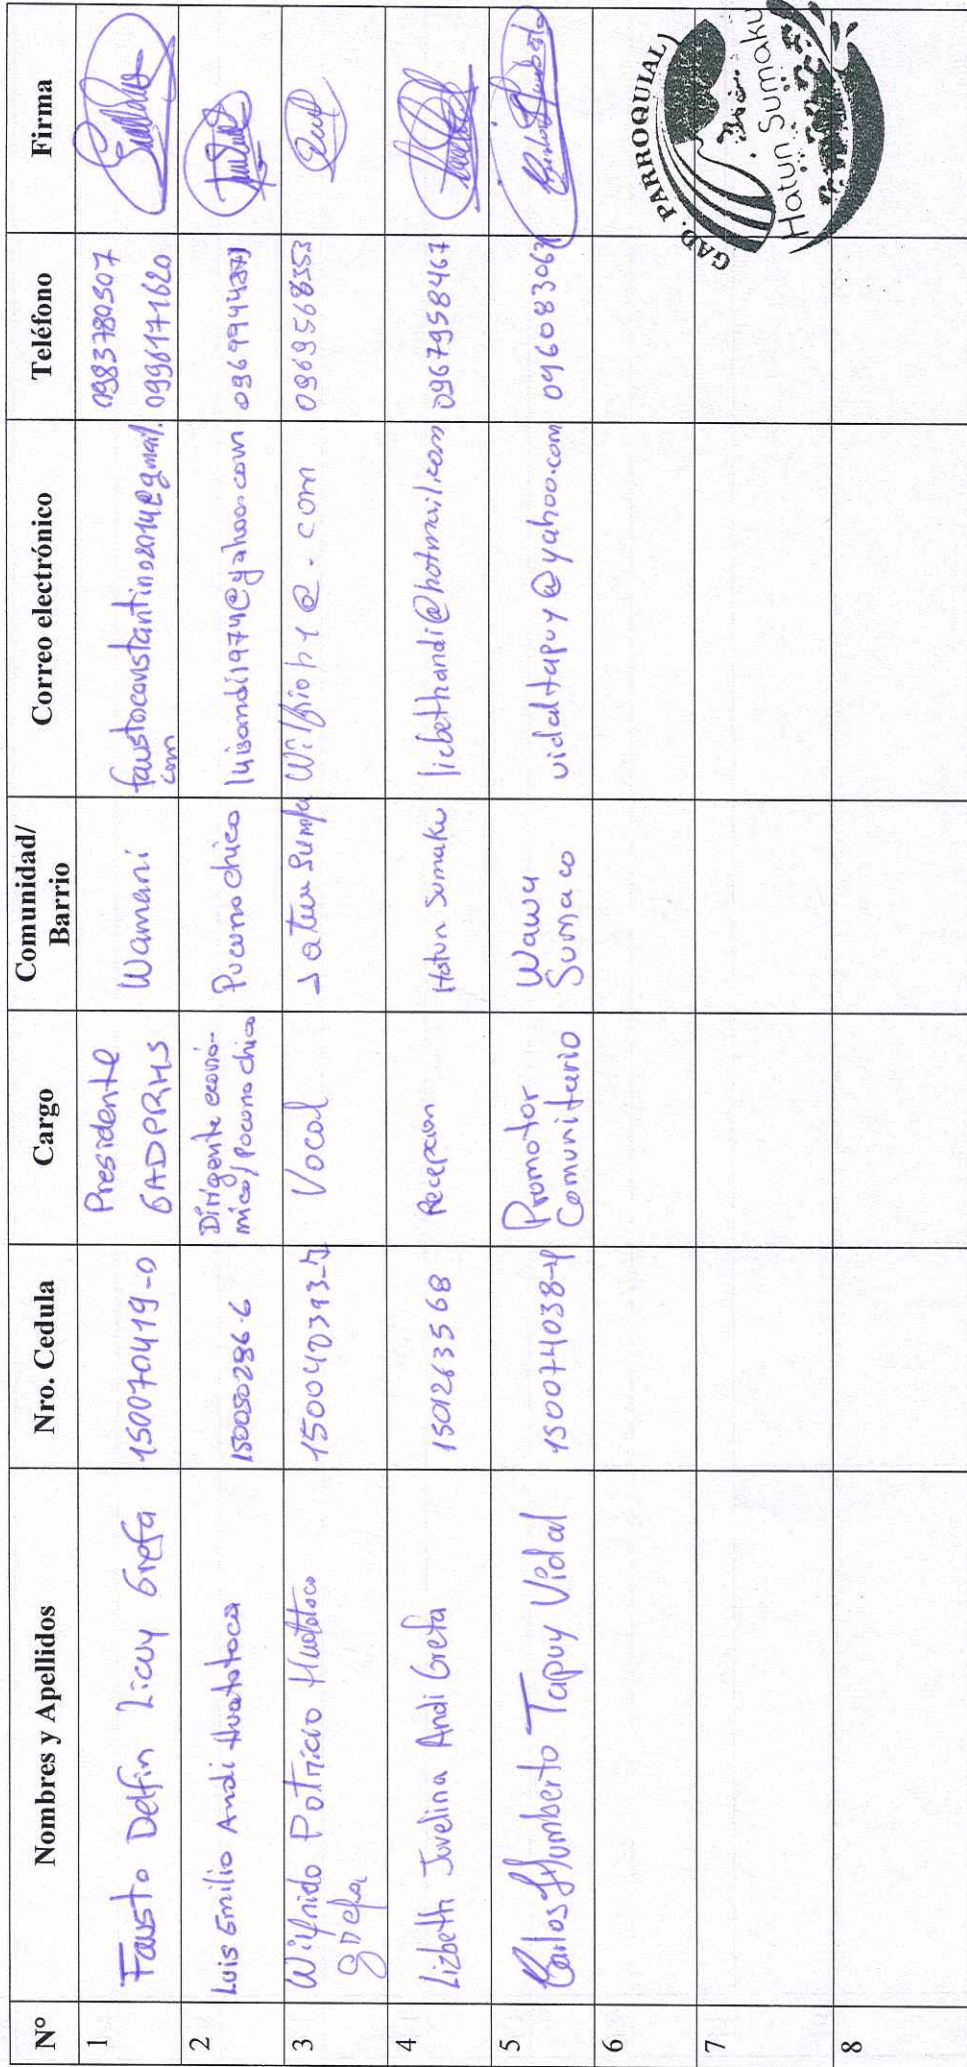 N° Nombres y Apellidos Nro. Cedula Cargo Comunidad/ Barrio Correo electrónico Teléfono Firma
1 Fausto Delfin Licuy Grefa 150070419-0 Presidente GADPRHS Wamani faustoconstantino2014@gmail.com 0983780507 0996171620
2 Luis Emilio Andi Huatatoca 150050286-6 Dirigente econó-mico/Pocono chico Pucuno chico luisandi1974@yahoo.com
3 Wilfrido Patricio Huatatoco Grefa Vocal 0969568353
4 Lizbeth Juvelina Andi Grefa 1501263568 Recepcion Hatun Sumaku licbethandi@hotmail.com 0967958467
5 Carlos Humberto Tapuy Vidal 150074038-4 Promotor Comunitario Wawa Sumaco vidaltapuy@yahoo.com
6
7
8
GAD. PARROQUIAL
Hatun Sumaku